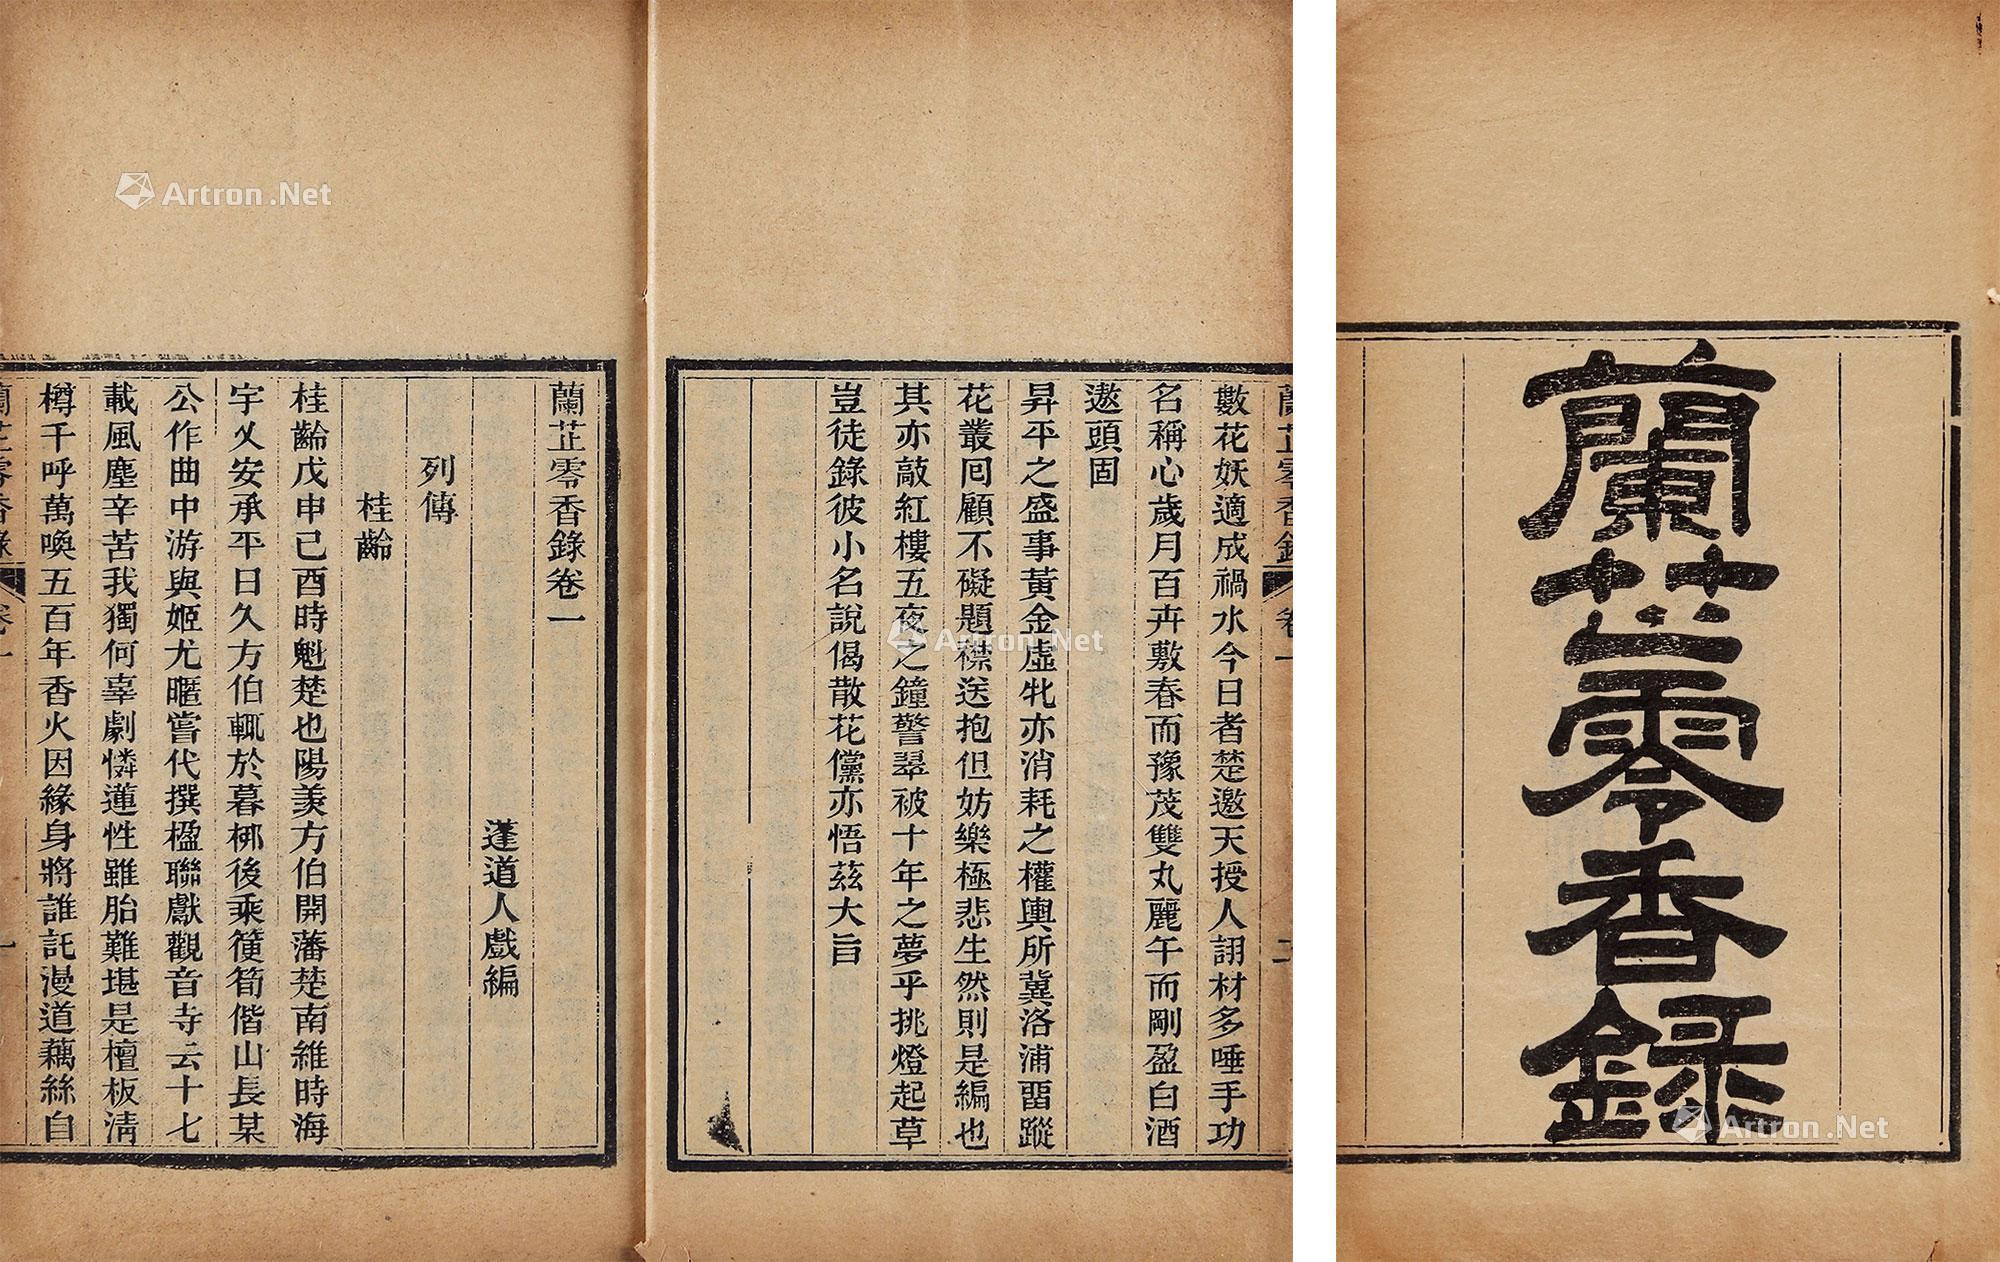 蘭芷零香錄
數花妖適成禍水今日者楚邀天授人詡材多唾手功
名稱心歲月百卉敷春而豫茂雙丸麗午而剛盈白酒
遨頭固
昇平之盛事黃金虛牝亦消耗之權輿所冀洛浦畱蹤
花叢囘顧不礙題襟送抱但妨樂極悲生然則是編也
其亦敲紅樓五夜之鐘警翠被十年之夢乎挑燈起草
豈徒錄彼小名說偈散花儻亦悟茲大旨
蘭芷零香錄卷一
蓬道人戲編
列傳
桂齡
桂齡戊申己酉時魁楚也陽羨方伯開藩楚南維時海
宇乂安承平日久方伯輒於暮柳後乘籧筍偕山長某
公作曲中游與姬尤暱嘗代撰楹聯獻觀音寺云十七
載風塵辛苦我獨何辜劇憐蓮性雖胎難堪是檀板淸
樽千呼萬喚五百年香火因緣身將誰託漫道藕絲自
蘭芷零香錄 卷一 一
Artron.Net
Artron.Net
Artron.Net